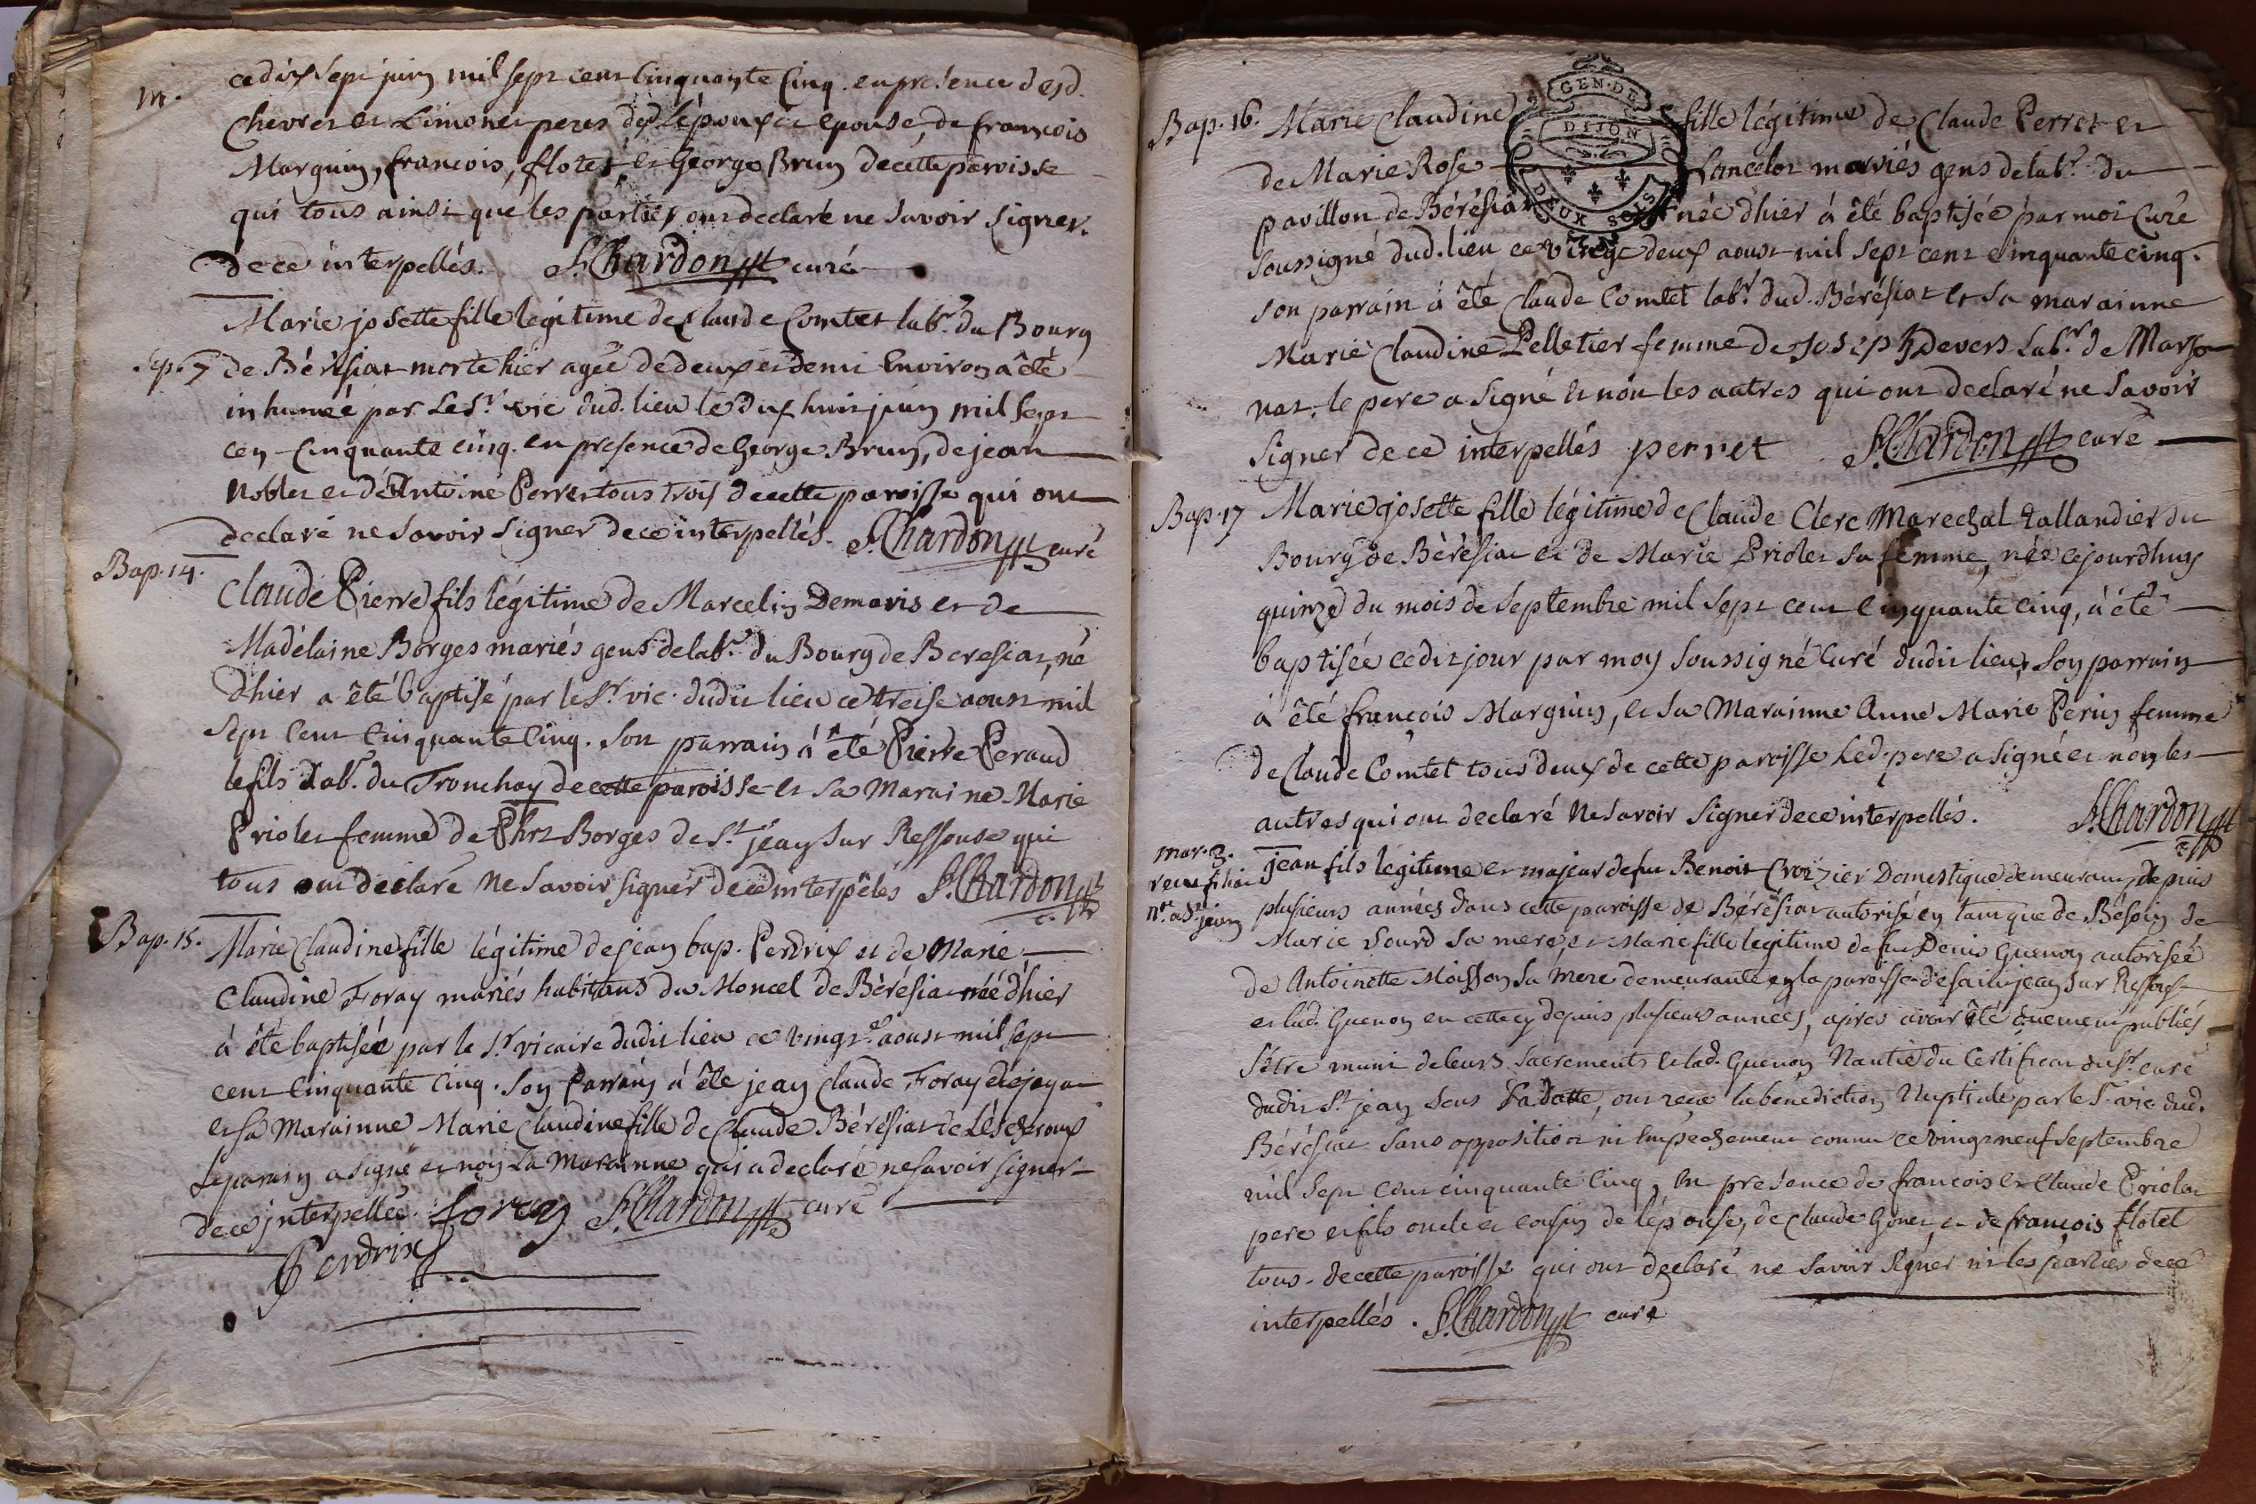 m.
ce dix sept juin mil sept cent Cinquante Cinq. en presence desd.
Chevret et Limonet peres des l'époux et epouse, de françois
Marguin, francois, flotet et George Brun de cette paroisse
qui tous ainsi que les parties ont declaré ne savoir signer.
de ce interpellés. J. Chardon curé
Marie josette fille légitime de Claude Comtet lab.r du Bourg
Sep. 7 de Bérésiat morte hier agée de deux et demi Environ a été
inhumée par le S.r vic dud. lieu le dix huit juin mil sept
cen Cinquante cinq. en presence de George Brun, de jean
Noblet et de Antoine Perret tous trois de cette paroisse qui ont
declaré ne Savoir signer de ce interpellés. J. Chardon curé
Bap. 14.
Claude Pierre fils légitime de Marcelin Demaris et de
Madelaine Borges mariés gens de lab.r du Bourg de Beresiat, né
d'hier a été baptisé par le S.r vic. dudit lieu ce treise aoust mil
Sept Cent Cinquante Cinq. Son parrain à été Pierre Peraud
le fils Lab.r du Tronchay de cette paroisse et sa Maraine Marie
Priolet femme de Borges de S.t jean sur Ressouse qui
tous ont declaré Ne Savoir signer de ce interpelés J. Chardon
c.
Bap. 15. Marie Claudine fille légitime de jean bap. Perdrix et de Marie
Claudine Foray mariés habitans du Moncel de Bérésiat née d'hier
à été baptisée par le S.r vicaire dudit lieu ce vingt aoust mil sept
cent Cinquante Cinq. Son Parrain à été jean Claude Foray de jayat
et sa Marainne Marie Claudine fille de Claude Bérésiat de Lescheroux
Le parain a signé et non La Marainne qui a declaré ne savoir signer
de ce interpellée. foray J. Chardon curé
Perdrix
GEN. DE
DIJON
DEUX SOLS
Bap. 16. Marie Claudine fille légitime de Claude Perret et
de Marie Rose Lancelot mariés gens de lab.r du
pavillon de Bérésiat née d'hier à été baptisée par moi Curé
soussigné dud. lieu ce vingt deux aoust mil sept cent cinquante cinq.
son parrain à été Claude Comtet lab.r dud. Bérésiat et sa marainne
Marie Claudine Pelletier femme de Joseph Devers Lab.r de Marso
nat, le pere a signé et non les autres qui ont declaré ne savoir
signer de ce interpellés perret J. Chardon curé
Bap. 17 Marie josette fille légitime de Claude Clerc Marechal tallandier du
Bourg de Bérésiat et de Marie Priolet sa femme, née cejourdhuy
quinze du mois de Septembre mil sept cent Cinquante cinq, à été
baptisée cedit jour par moy soussigné Curé dudit lieu, Son parrain
à été françois Marguin, et sa Marainne Anne Marie Perin femme
de Claude Comtet tous deux de cette paroisse Led. pere a signé et non les
autres qui ont declaré Ne savoir signer de ce interpellés. J. Chardon
c.
Mar. 3. jean fils légitime et majeur de fu Benoit Croizier Domestique demeurant depuis
plusieurs années dans cette paroisse de Bérésiat autorisé en tant que de Bésoin de
a S.t jean
Marie Sourd sa mere, et Marie fille legitime de fu Denis Guenon autorisée
de Antoinette Moisson sa Mere demeurante en la paroisse de saint jean sur Ressouse
et lad. Guenon en cette cy depuis plusieurs années, après avoir été duement publiés
s'être muni de leurs sacrements et lad. Guenon Nantie du Certificat du S.r curé
dudit S.t jean sous Sa datte, ont reçu la bénédiction Nuptiale par le S.r vic dud.
Bérésiat sans opposition ni Empechement connu ce vingt neuf Septembre
mil sept cent cinquante Cinq, En présence de francois et Claude Priolet
pere et fils oncle et cousin de l'épouse, de Claude Genet, et de francois flotet
tous de cette paroisse qui ont declaré ne savoir signer ni les parties de ce
interpellés. J. Chardon curé